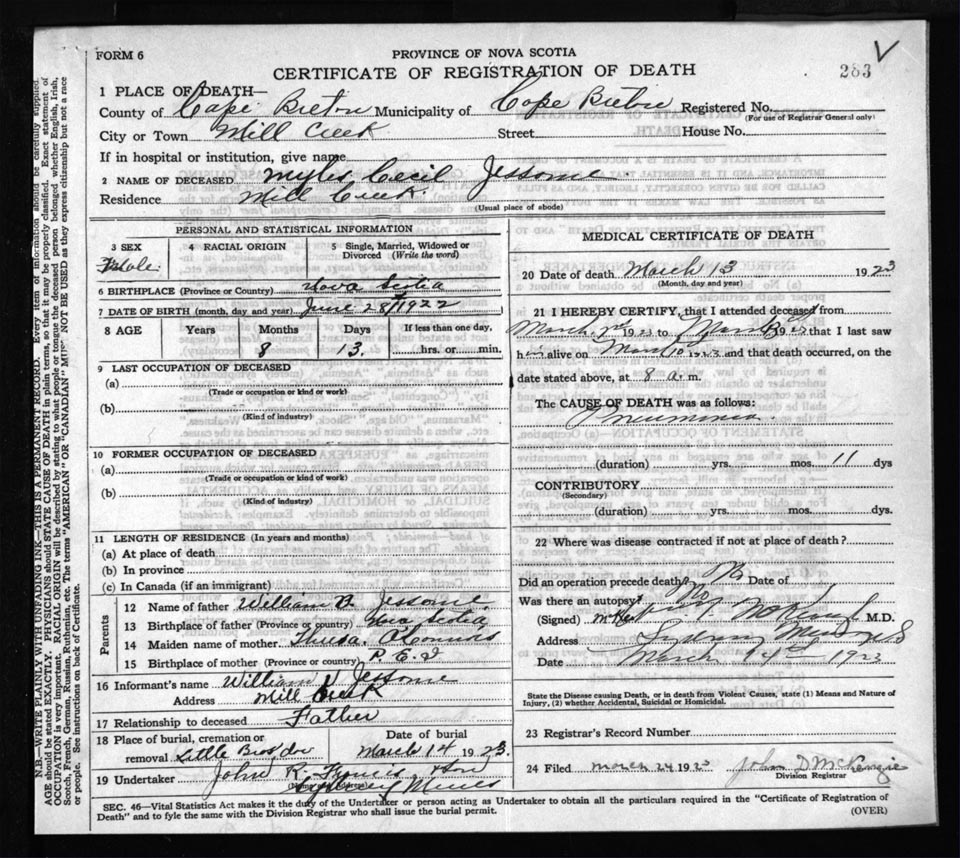 FORM 6
PROVINCE OF NOVA SCOTIA
CERTIFICATE OF REGISTRATION OF DEATH
283
1 PLACE OF DEATH—
County of Cape Breton Municipality of Cape Breton Registered No.
(For use of Registrar General only)
City or Town Mill Creek Street House No.
If in hospital or institution, give name
2 NAME OF DECEASED. Myles Cecil Jessome
Residence Mill Creek.
(Usual place of abode)
PERSONAL AND STATISTICAL INFORMATION
3 SEX Male 4 RACIAL ORIGIN 5 Single, Married, Widowed or Divorced (Write the word)
6 BIRTHPLACE (Province or Country) Nova Scotia
7 DATE OF BIRTH (month, day and year) June 28/1922
8 AGE Years Months Days If less than one day,
8 13. hrs. or min.
9 LAST OCCUPATION OF DECEASED
(a)
(Trade or occupation or kind of work)
(b)
(Kind of industry)
10 FORMER OCCUPATION OF DECEASED
(a)
(Trade or occupation or kind of work)
(b)
(Kind of industry)
11 LENGTH OF RESIDENCE (In years and months)
(a) At place of death
(b) In province
(c) In Canada (if an immigrant)
Parents
12 Name of father William B. Jessome
13 Birthplace of father (Province or country) Nova Scotia
14 Maiden name of mother
15 Birthplace of mother (Province or country) P.E.I
16 Informant's name William Jessome
Address Mill Creek
17 Relationship to deceased Father
18 Place of burial, cremation or removal Little Bras d'or Date of burial March 14 1923.
19 Undertaker John R. &
Sydney Mines
MEDICAL CERTIFICATE OF DEATH
20 Date of death March 13 1923
(Month, day and year)
21 I HEREBY CERTIFY, that I attended deceased from
March 1923 to March 1923 that I last saw
him alive on Mar 10 1923 and that death occurred, on the
date stated above, at 8 a. m.
The CAUSE OF DEATH was as follows:
Pneumonia
(duration) yrs. mos. 11 dys
CONTRIBUTORY
(Secondary)
(duration) yrs. mos. dys
22 Where was disease contracted if not at place of death?
Did an operation precede death? No Date of
Was there an autopsy? No
(Signed) M.D.
Address Sydney Mines NS
Date March 14th 1923
State the Disease causing Death, or in death from Violent Causes, state (1) Means and Nature of
Injury, (2) whether Accidental, Suicidal or Homicidal.
23 Registrar's Record Number
24 Filed March 24 1923 John D McKenzie
Division Registrar
SEC. 46—Vital Statistics Act makes it the duty of the Undertaker or person acting as Undertaker to obtain all the particulars required in the "Certificate of Registration of
Death" and to fyle the same with the Division Registrar who shall issue the burial permit.
(OVER)
N.B.—WRITE PLAINLY WITH UNFADING INK—THIS IS A PERMANENT RECORD. Every item of information should be carefully supplied.
AGE should be stated EXACTLY. PHYSICIANS should STATE CAUSE OF DEATH in plain terms, so that it may be properly classified. Exact statement of
OCCUPATION is very important. RACIAL ORIGIN will be described by stating to what people or tongue the deceased person belonged whether English, Irish,
Scotch, French, German, Russian, Ruthenian, etc. The terms "AMERICAN" OR "CANADIAN" MUST NOT BE USED as they express citizenship but not a race
or people. See instructions on back of Certificate.